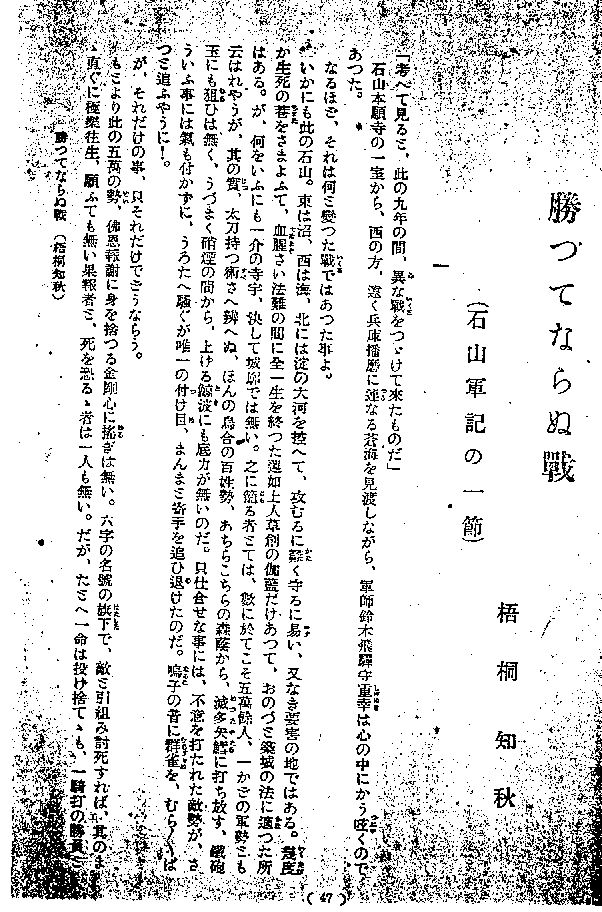 勝つてならぬ戰
(石山軍記の一節)
梧桐知秋
「考べて見るミ、此の九年の間、異な戰をつゞけて來たものだ」
石山本願寺の一室から、西の方、遠く兵庫播磨に連なる蒼海を見渡しながら、軍師鈴木飛驒守重幸は心の中にかう呟くので
あつた。
なるほど、それは何ミ變つた戰ではあつた事よ。
いかにも此の石山。東は沼、西は海、北には淀の大河を控へて、攻むるに難く守るに易い、又なき要害の地ではある。幾度
か生死の巷をさまよふて、血腥さい法難の間に全一生を終つた蓮如上人草創の伽藍だけあつて、おのづミ築城の法に適つた所
はある。が、何をいふにも一介の寺宇、決して城廓では無い。之に籠る者ミては、數に於てこそ五萬餘人、一かどの軍勢ミも
云はれやうが、其の質、太刀持つ術さへ辨へぬ、ほんの烏合の百姓勢、あちらこちらの森蔭から、滅多矢鱈に打ち放す、鐵砲
玉にも狙ひは無く、うづまく硝煙の間から、上げる鯨波にも底力が無いのだ。只仕合せな事には、不意を打たれた敵勢が、さ
ういふ事には氣も付かずに、うろたへ騷ぐが唯一の付け目、まんまミ寄手を追ひ退けたのだ。鳴子の音に群雀を、むら〳〵ぱ
つミ追ふやうに！。
が、それだけの事、只それだけでどうならう。
もミより此の五萬の勢、佛恩報謝に身を捨つる金剛心に搖ぎは無い。六字の名號の旗下で、敵ミ引組み討死すれば、其のま
ゝ直ぐに極樂往生、願ふても無い果報者ミ、死を恐るゝ者は一人も無い。だが、たミへ一命は投げ捨てゝも、一騎打の勝負に
勝つてならぬ戰 (梧桐知秋)
( 47 )